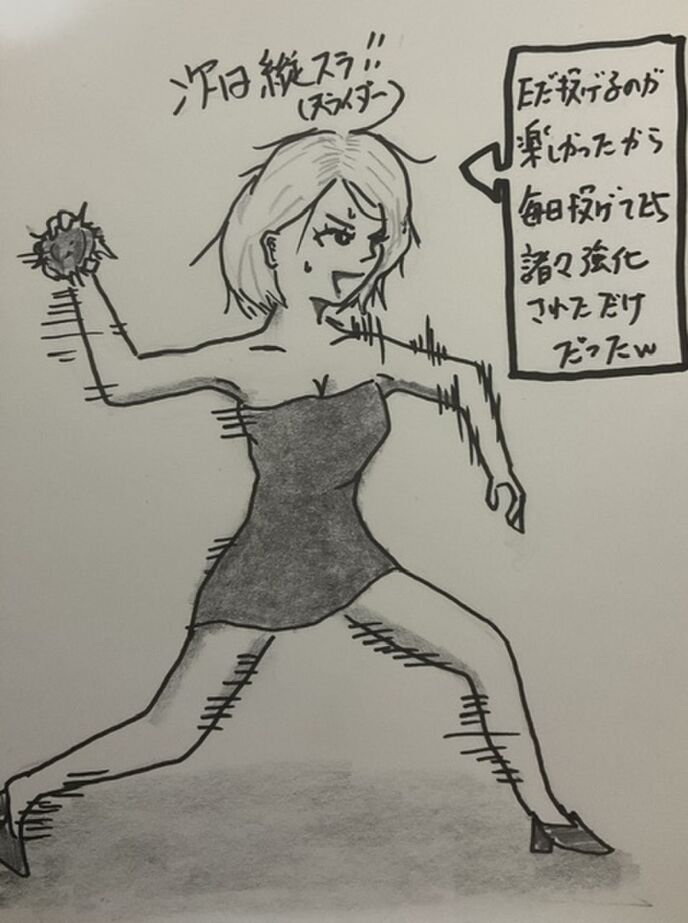 次は縦スラ!!
(スライダー)
ただ投げるのが
楽しかったから
毎日投げてたら
諸々強化
されただけ
だったw